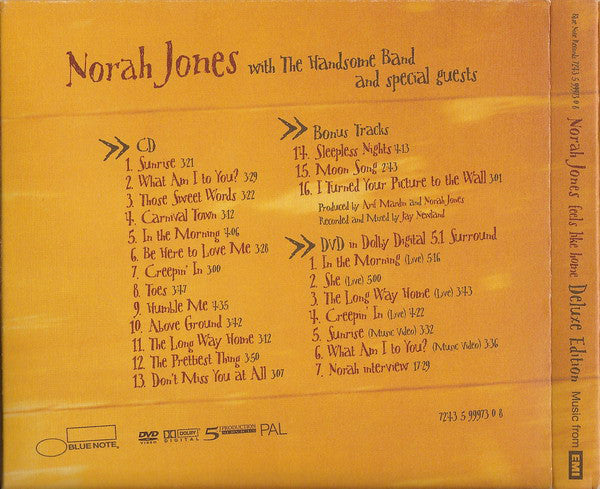 Norah Jones with The Handsome Band
and special guests
CD
1. Sunrise 3:21
2. What Am I to You? 3:29
3. Those Sweet Words 3:22
4. Carnival Town 3:12
5. In the Morning 4:06
6. Be Here to Love Me 3:28
7. Creepin' In 3:00
8. Toes 3:47
9. Humble Me 4:35
10. Above Ground 3:42
11. The Long Way Home 3:12
12. The Prettiest Thing 3:50
13. Don't Miss You at All 3:07
Bonus Tracks
14. Sleepless Nights 4:13
15. Moon Song 2:43
16. I Turned Your Picture to the Wall 3:01
Produced by Arif Mardin and Norah Jones
Recorded and Mixed by Jay Newland
DVD in Dolby Digital 5.1 Surround
1. In the Morning (Live) 5:16
2. She (Live) 5:00
3. The Long Way Home (Live) 3:43
4. Creepin' In (Live) 4:22
5. Sunrise (Music Video) 3:32
6. What Am I to You? (Music Video) 3:36
7. Norah interview 17:29
BLUE NOTE
DVD VIDEO
DOLBY DIGITAL
5 PRODUCTION
PAL
7243 5 99973 0 8
Blue Note Records 7243 5 99973 0 8
Norah Jones feels like home Deluxe Edition Music from EMI